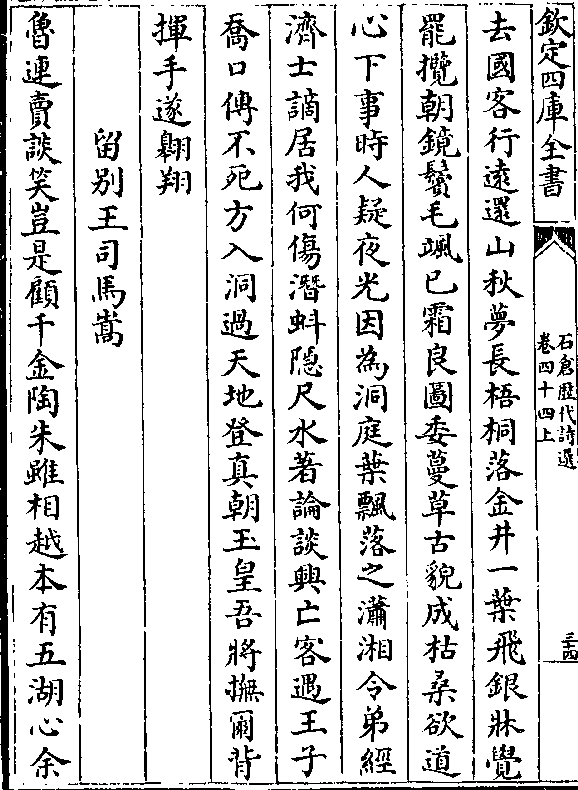 欽定四庫全書
石倉歴代詩選
卷四十四上
三十四
去國客行遠還山秋夢長梧桐落金井一葉飛銀牀覺
罷攬朝鏡鬢毛颯已霜良圖委蔓草古貌成枯桑欲道
心下事時人疑夜光因為洞庭葉飄落之瀟湘令弟經
濟士謫居我何傷潛虬隠尺水著論談興亡客遇王子
喬口傳不死方入洞過天地登真朝玉皇吾將撫爾背
揮手遂翺翔
留别王司馬嵩
魯連賣談笑豈是顧千金陶朱雖相越本有五湖心余